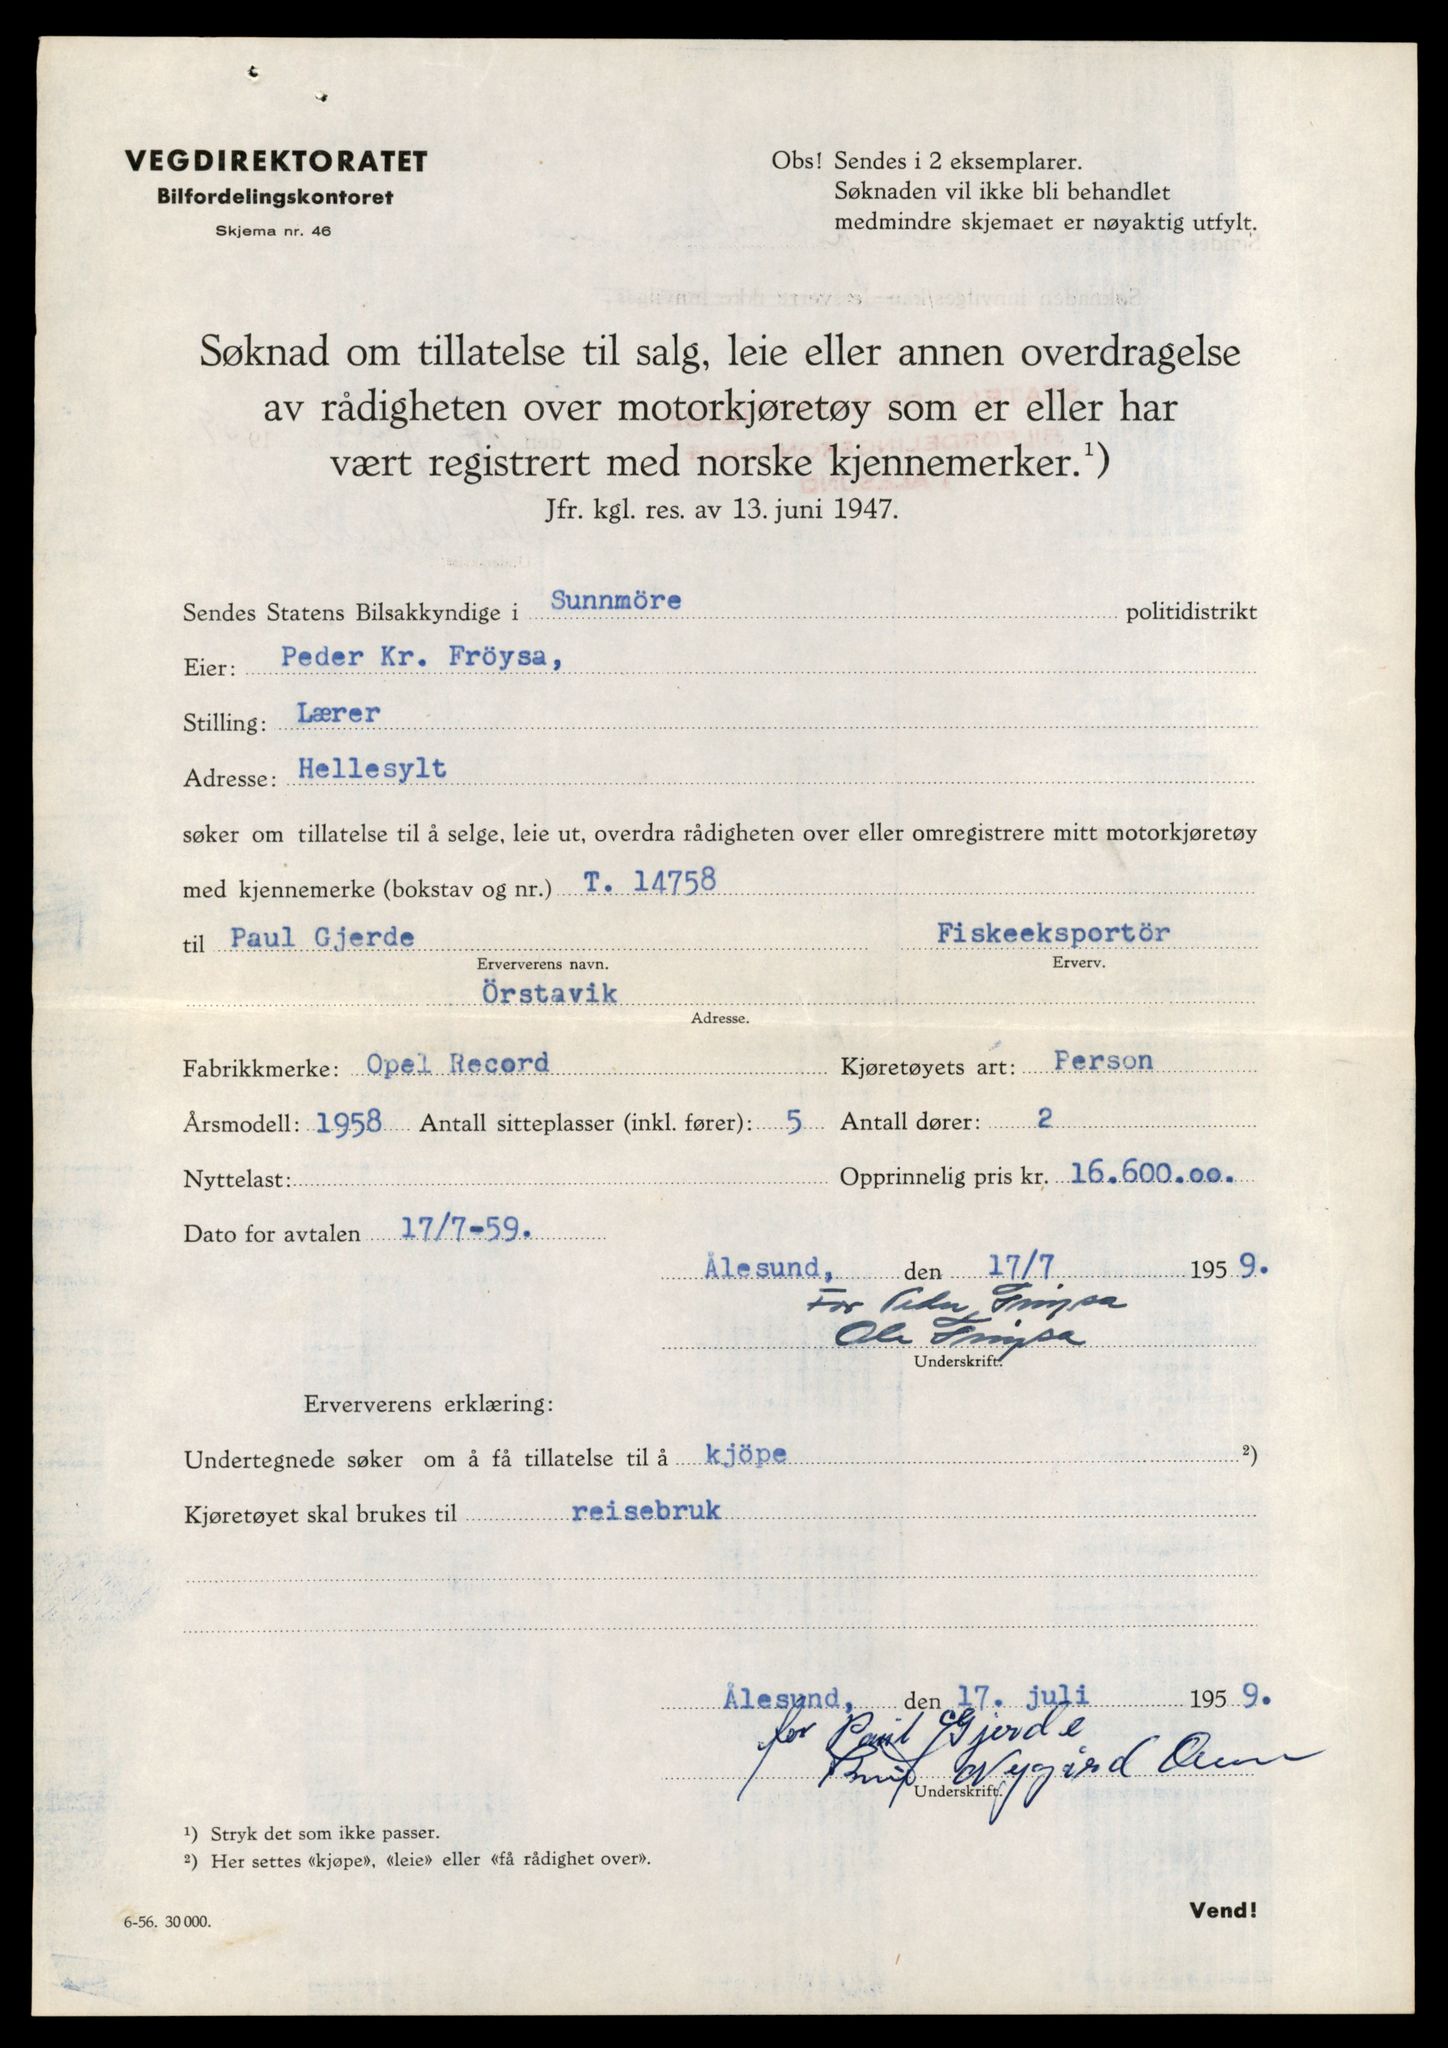 VEGDIREKTORATET
Bilfordelingskontoret
Skjema nr. 46
Obs! Sendes i 2 eksemplarer.
Søknaden vil ikke bli behandlet
medmindre skjemaet er nøyaktig utfylt.
Søknad om tillatelse til salg, leie eller annen overdragelse
av rådigheten over motorkjøretøy som er eller har
vært registrert med norske kjennemerker.¹)
Jfr. kgl. res. av 13. juni 1947.
Sendes Statens Bilsakkyndige i Sunnmöre politidistrikt
Eier: Peder Kr. Fröysa,
Stilling: Lærer
Adresse: Hellesylt
søker om tillatelse til å selge, leie ut, overdra rådigheten over eller omregistrere mitt motorkjøretøy
med kjennemerke (bokstav og nr.) T. 14758
til Paul Gjerde Fiskeeksportör
Erververens navn. Erverv.
Örstavik
Adresse.
Fabrikkmerke: Opel Record Kjøretøyets art: Person
Årsmodell: 1958 Antall sitteplasser (inkl. fører): 5 Antall dører: 2
Nyttelast: Opprinnelig pris kr. 16.600.00.
Dato for avtalen 17/7-59.
Ålesund, den 17/7 1959.
For Peder Frøysa
Ole Frøysa
Underskrift.
Erververens erklæring:
Undertegnede søker om å få tillatelse til å kjöpe ²)
Kjøretøyet skal brukes til reisebruk
Ålesund, den 17. juli 1959.
for Paul Gjerde
Nygård
Underskrift.
¹) Stryk det som ikke passer.
²) Her settes «kjøpe», «leie» eller «få rådighet over».
6-56. 30 000.
Vend!